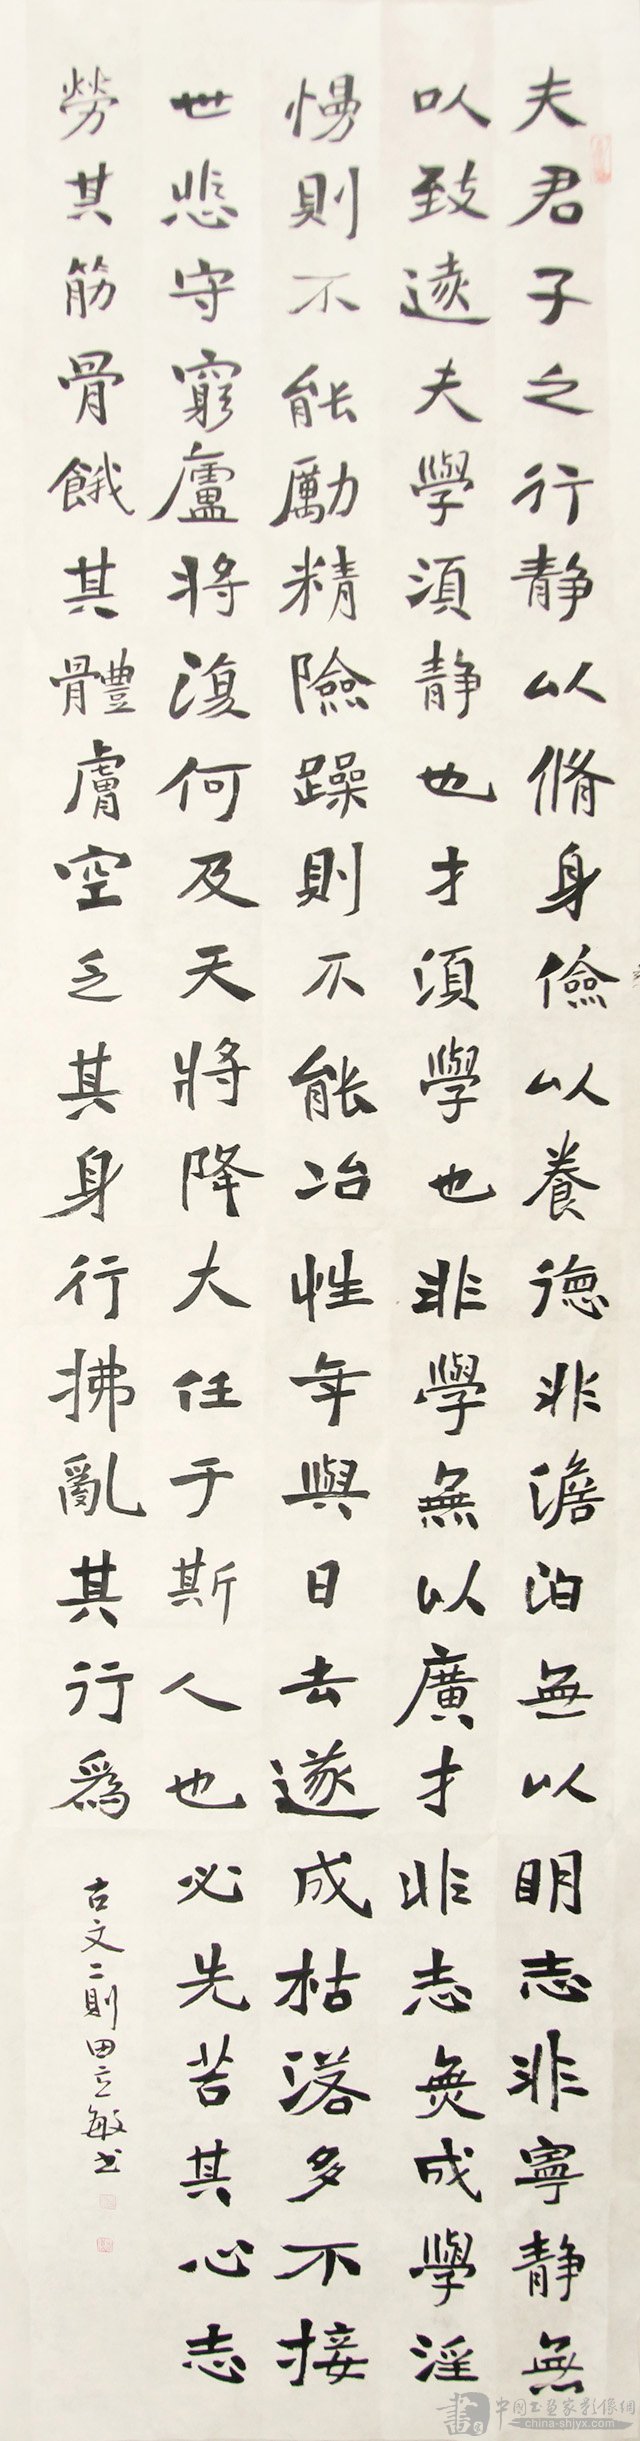 夫君子之行静以脩身儉以養德非澹泊無以明志非寧静無
以致遠夫學須静也才須學也非學無以廣才非志無成學淫
慢則不能勵精險躁則不能冶性年與日去遂成枯落多不接
世悲守窮廬將復何及天將降大任于斯人也必先苦其心志
勞其筋骨餓其體膚空乏其身行拂亂其行爲
古文二則田立敏书
中國书画家影像網
china-shjyx.com